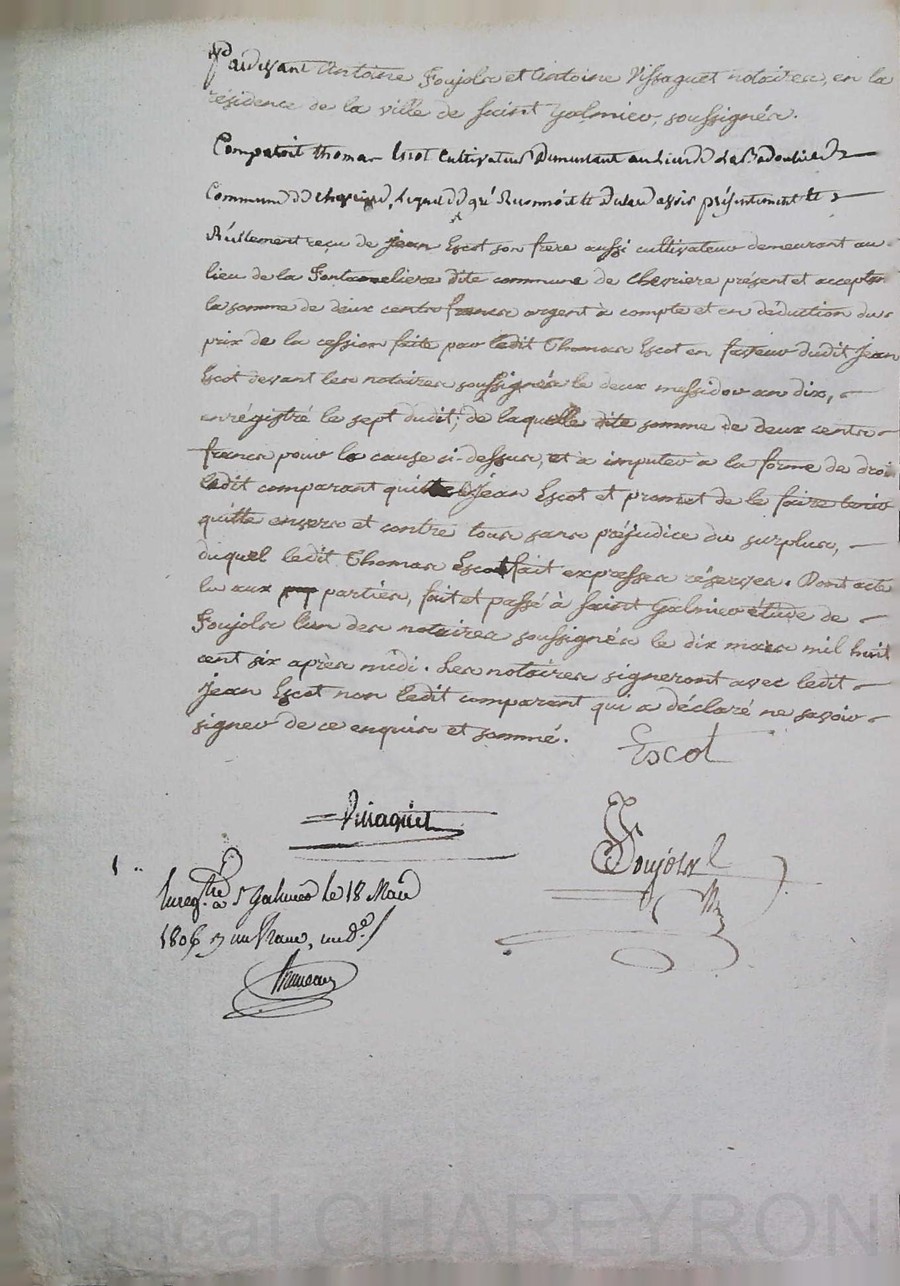 Pardevant Antoine Soujols et Antoine Vissaguet notaires, en la
résidence de la ville de Saint Galmier, soussignés.
Comparoit Thomas Escot Cultivateur Demeurant au Lieu de
Commune de Chevriere, Lequel de gré Reconnoit et Declare avoir présentement et
Réellement reçu de Jean Escot son frère aussi cultivateur demeurant au
lieu de la Fontaneliere dite commune de Chevriere présent et acceptant
la somme de deux cents francs argent à compte et en déduction du
prix de la cession faite par ledit Thomas Escot en faveur dudit Jean
Escot devant les notaires soussignés le deux messidor an dix,
enrégistré le sept dudit; de laquelle dite somme de deux cents
francs pour la cause ci-dessus, et a imputer à la forme de droit
ledit comparant quitte Jean Escot et promet de le faire tenir
quitte envers et contre tous sans préjudice du surplus,
duquel ledit Thomas Escot fait expresses réserves. Dont acte
lu aux parties, fait et passé à Saint Galmier étude de
Soujols l'un des notaires soussignés le dix mars mil huit
cent six après midi. Les notaires signeront avec ledit
Jean Escot non ledit comparant qui a déclaré ne savoir
signer de ce enquis et sommé.
Escot
Vissaguet
Soujols
Enreg.tré à St Galmier le 18 Mars
1806 un franc, un d.e
Pascal CHAREYRON